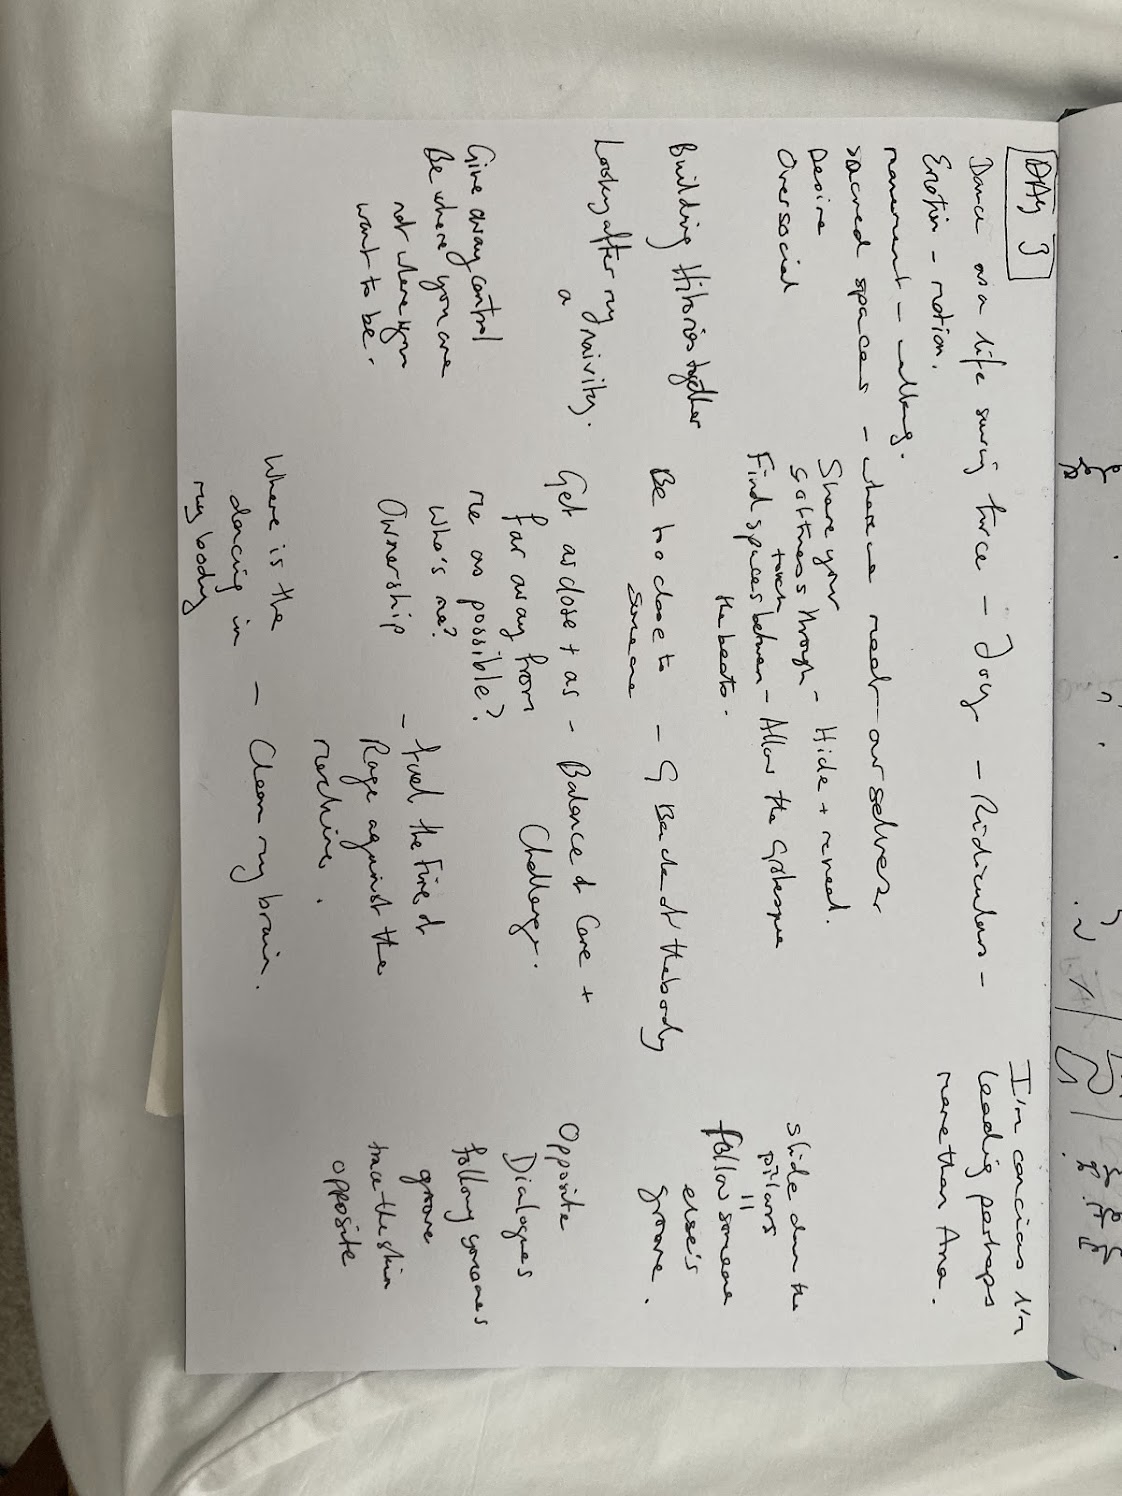 DAY 3
Dance as a life saving force - Joy - Ridiculous -
Emotion - motion.
movement - walking.
sacred spaces - where we meet ourselves
Desire
Oversocial
Share your
softness through - Hide + reveal.
touch
Find spaces between - Allow the Grotesque
the beats.
Building Histories together
Be too close to - Back of the body
someone
Looking after my naivity.
a
Get as close + as - Balance of Care +
far away from Challenge.
me as possible?
Who's me?
Ownership
Give away control
Be where you are
not where you
want to be.
- fuel the Fire of
Rage against the
machine.
Where is the - Clean my brain.
dancing in
my body
I'm concious I'm
leading perhaps
more than Ana.
Slide down the
pillars
"
follow someone
else's
groove.
Opposite
Dialogues
following someones
groove
trace the skin
opposite